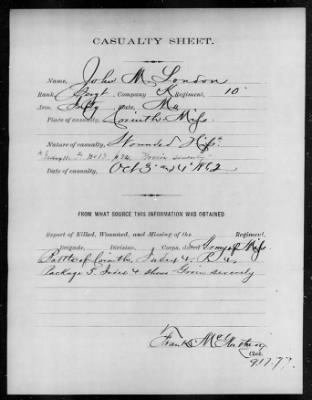 CASUALTY SHEET.
Name, John M. London
Rank, Sergt, Company K Regiment, 10"
Arm, Infty, State, Mo
Place of casualty, Corinth Miss.
Nature of casualty, Wounded Hip.
"Groin severely"
Date of casualty, Oct 3d & 4" 1862
FROM WHAT SOURCE THIS INFORMATION WAS OBTAINED
Report of Killed, Wounded, and Missing of the Regiment,
Brigade, Division, Corps, Army of Miss.
Battle of Corinth, Index 4. R 4.
Package 5. Index 4 shows Groin severely
Frank
Clerk.
917.77